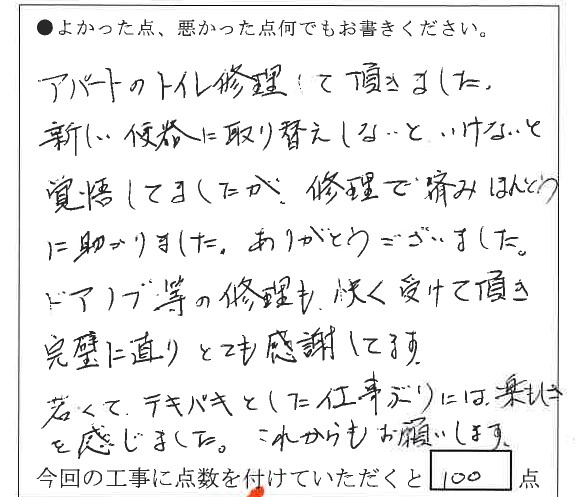 ●よかった点、悪かった点何でもお書きください。
アパートのトイレ修理して頂きました。
新しい便器に取り替えしないといけないと
覚悟してましたが、修理で済みほんとう
に助かりました。ありがとうございました。
ドアノブ等の修理も快く受けて頂き
完璧に直りとても感謝してます。
若くて、テキパキとした仕事ぶりには、楽もしさ
を感じました。これからもお願いします。
今回の工事に点数を付けていただくと 100 点